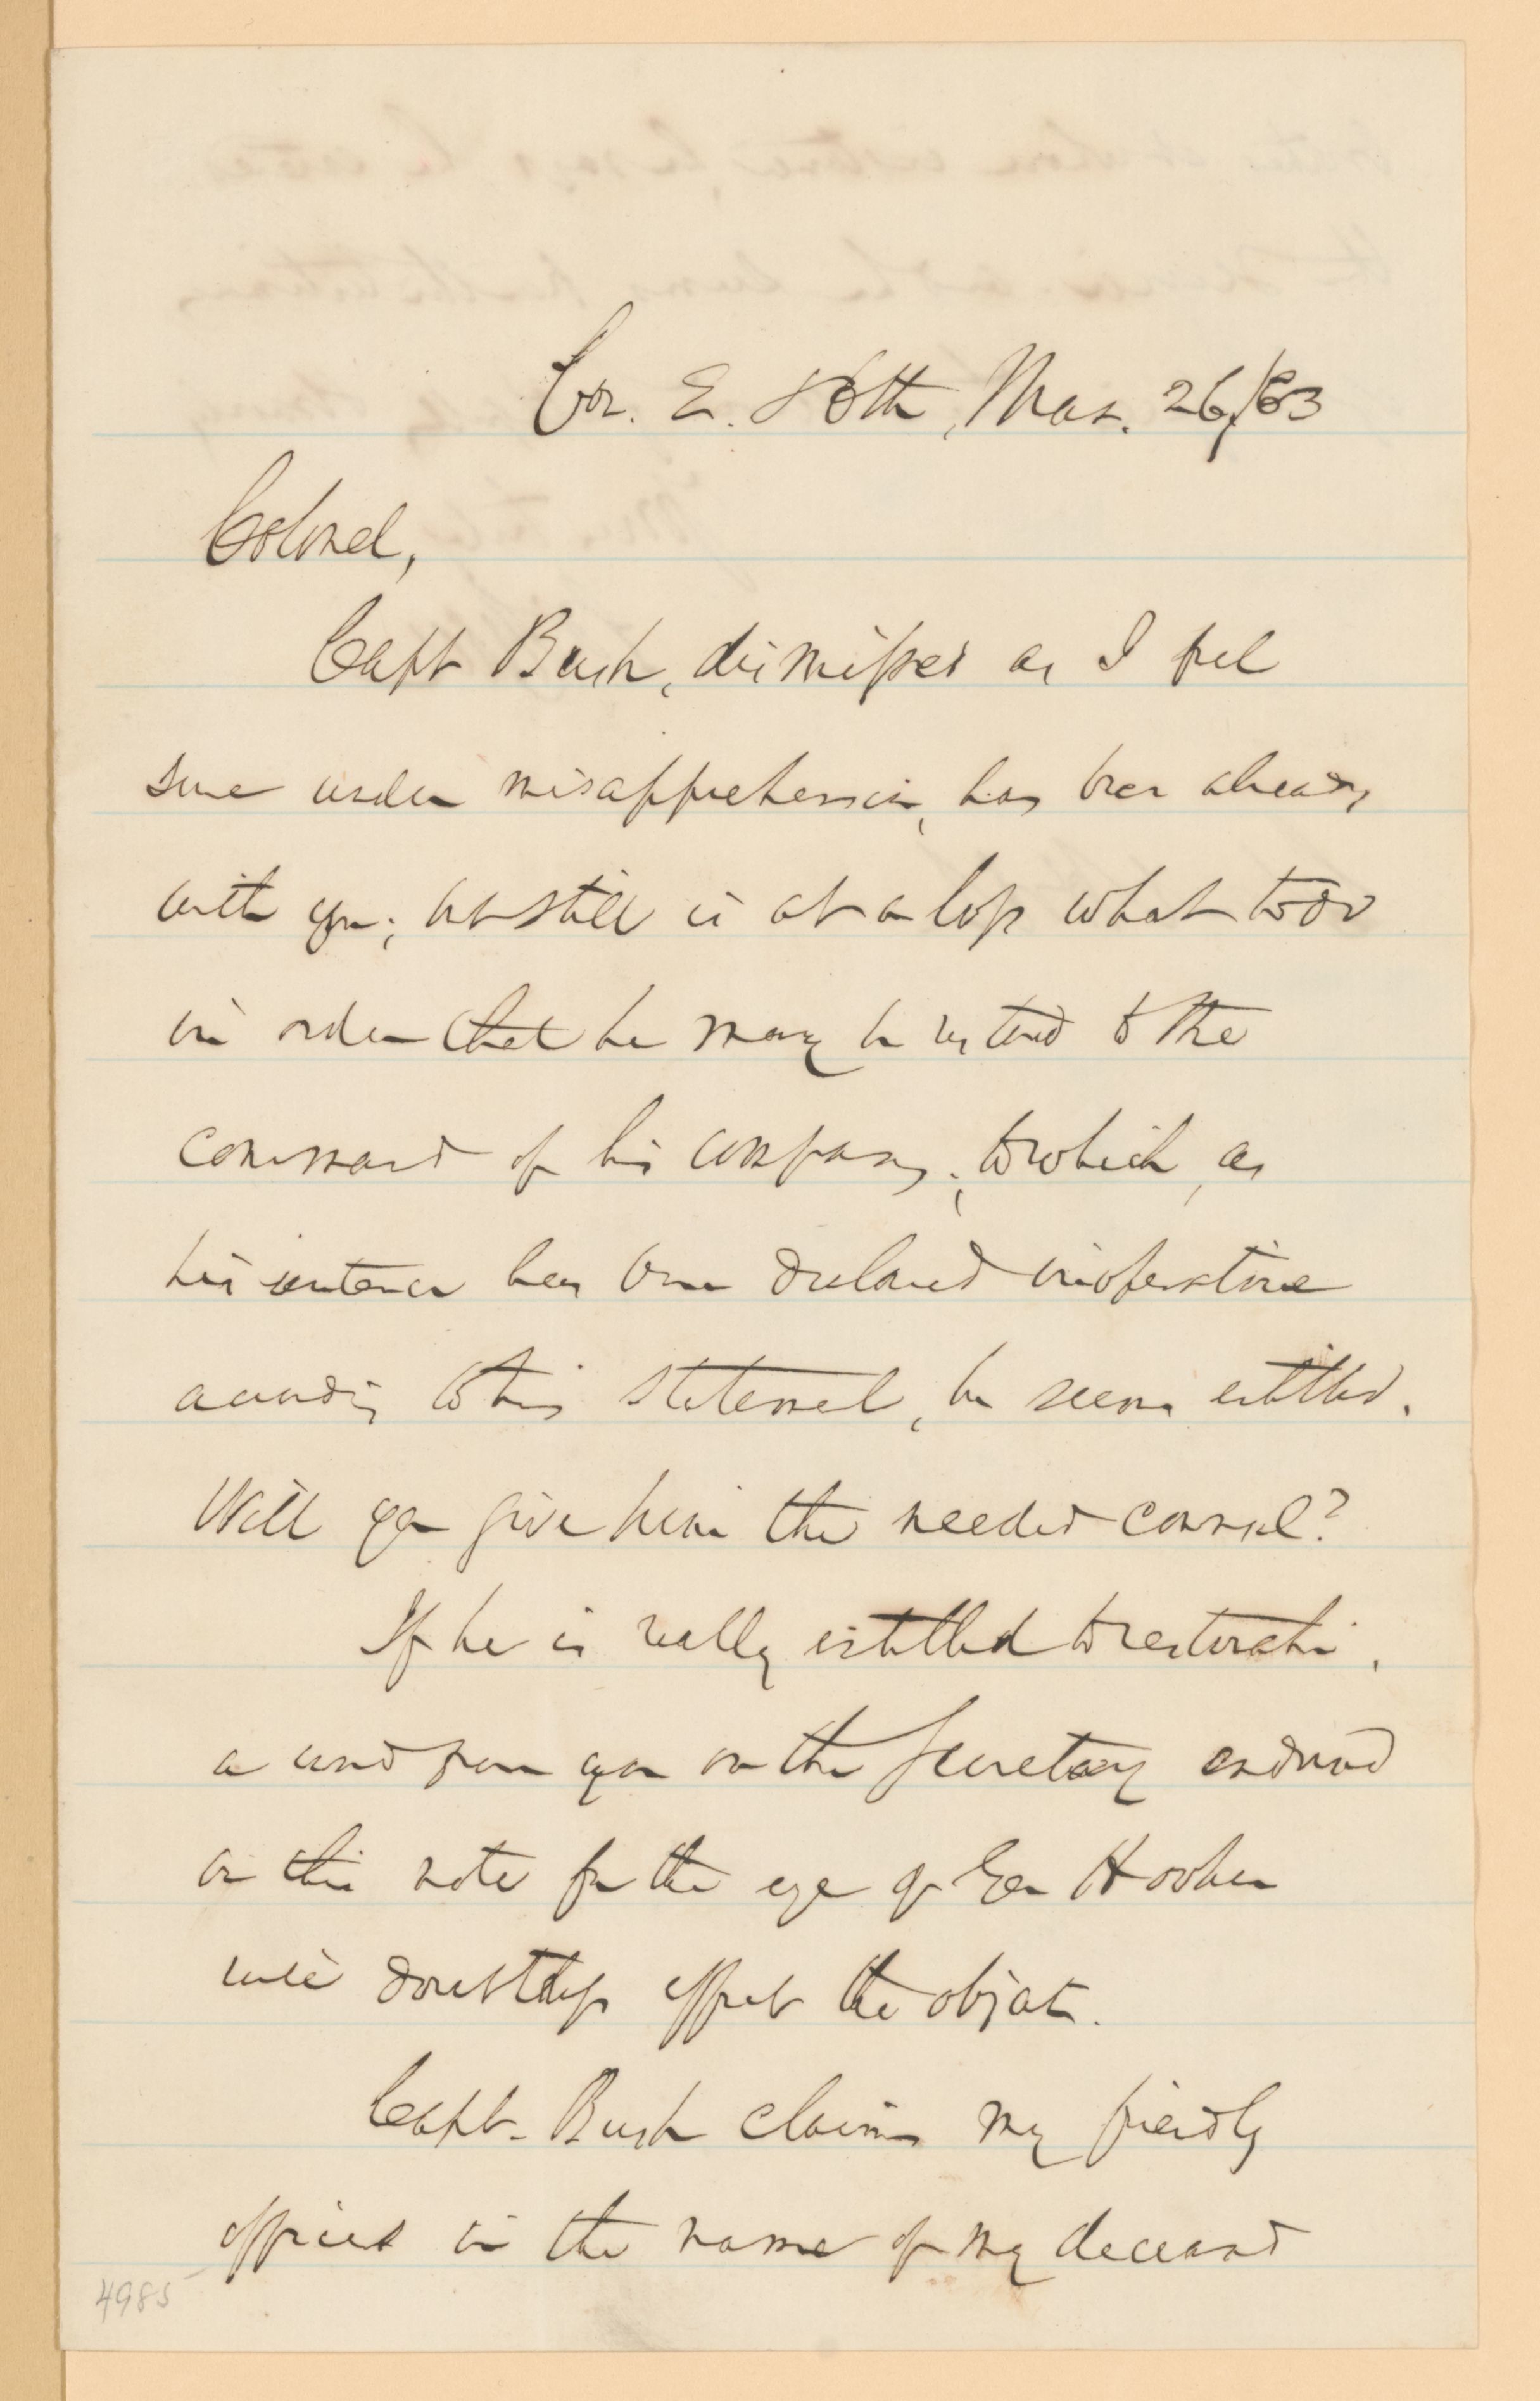 Cor. E. &  Mar. 26/63
Colonel,
Capt Bush, dismissed as I feel
sure under misapprehension, has been already
with you; but still is at a loss what to do
in order that he may be restored to the
command of his company; to which, as
his sentence has been declared inoperative
according to his statement, he seems entitled.
Will you give him the needed counsel?
If he is really entitled to restoration,
a word from you or the Secretary endorsed
on this note for the eye of Gen Hooker
will doubtless effect the object.
Capt. Bush claims my friendly
offices in the name of my deceased
4985